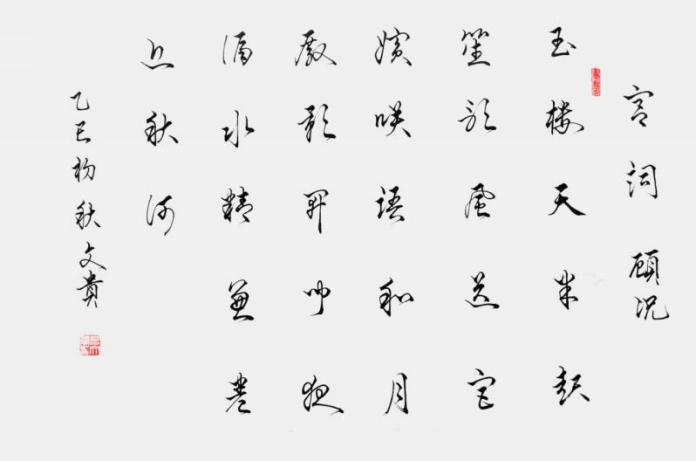 宫词 顾况
玉楼天半起
笙歌风送宫
嫔咲语和月
殿影开闻夜
漏水精帘卷
近秋河
乙巳初秋文貴